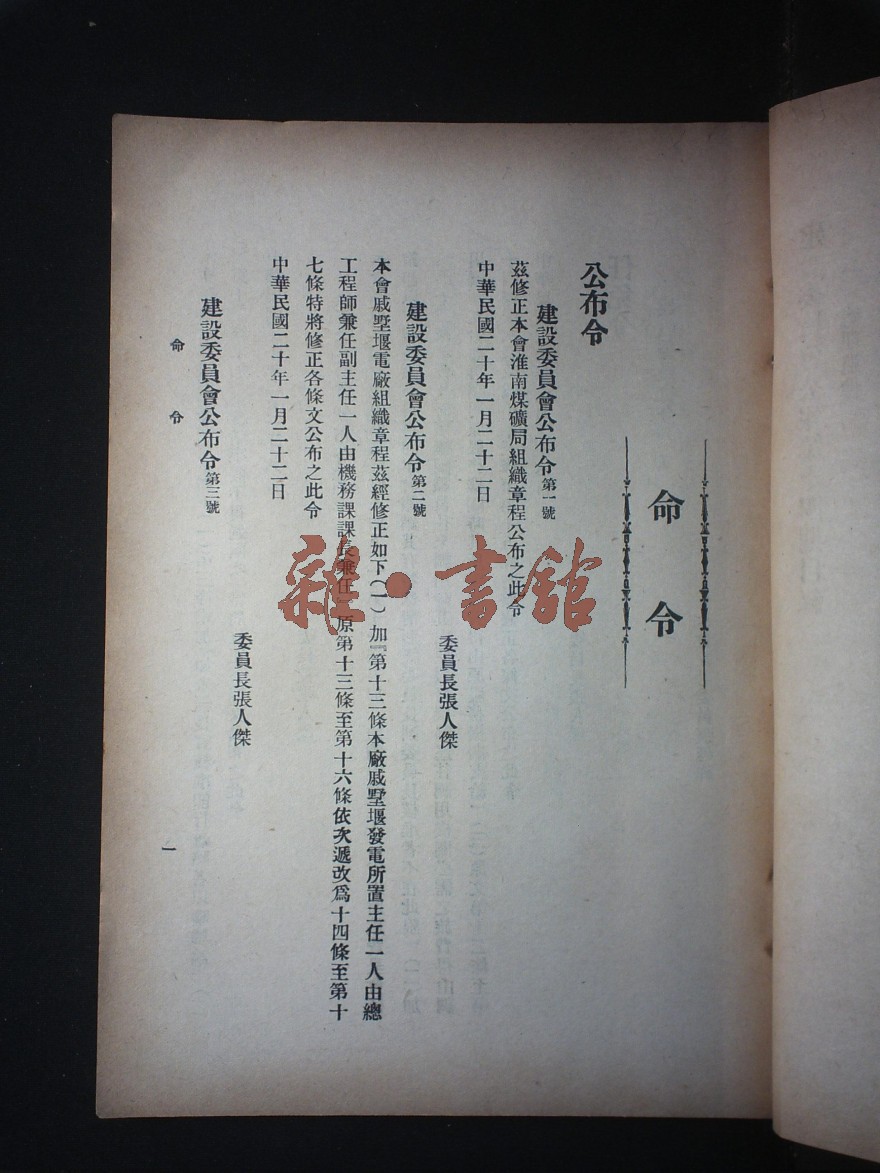 命令
公布令
建設委員會公布令第一號
茲修正本會淮南煤礦局組織章程公布之此令
中華民國二十年一月二十二日
委員長張人傑
建設委員會公布令第二號
本會戚墅堰電廠組織章程茲經修正如下（一）加『第十三條本廠戚墅堰發電所置主任一人由總
工程師兼任副主任一人由機務課課長兼任』原第十三條至第十六條依次遞改爲十四條至第十
七條特將修正各條文公布之此令
中華民國二十年一月二十二日
委員長張人傑
建設委員會公布令第三號
命令
一
雜·書館